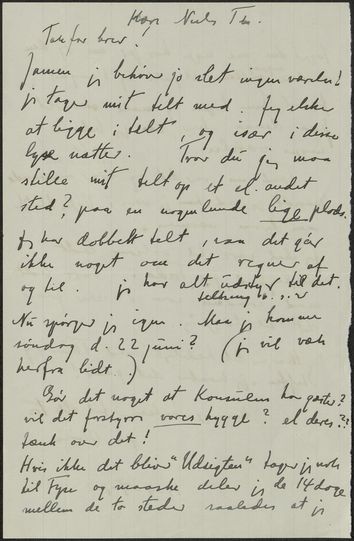 Kære Niels Th.
Tak for brev!
Jamen jeg behøver jo slet ingen værelse!
jeg tager mit telt med. Jeg elsker
at ligge i telt, og især i disse
lyse nætter. Tror du jeg maa
stille mit telt op et el. andet
sted? paa en nogenlunde lige plads.
Jeg har dobbelt telt, saa det gør
ikke noget om det regner af
og til. jeg har alt udstyr til det.
Nu spørger jeg igen. Maa jeg komme
søndag d. 22 juni? (jeg vil væk
herfra lidt.)
Gør det noget at Konsulens har gæster?
vil det forstyrre vores hygge? el deres??
tænk over det!
Hvis ikke det bliver "Udsigten" tager jeg nok
til Fyn og maaske deler jeg de 14 dage
mellem de to steder saaledes at jeg